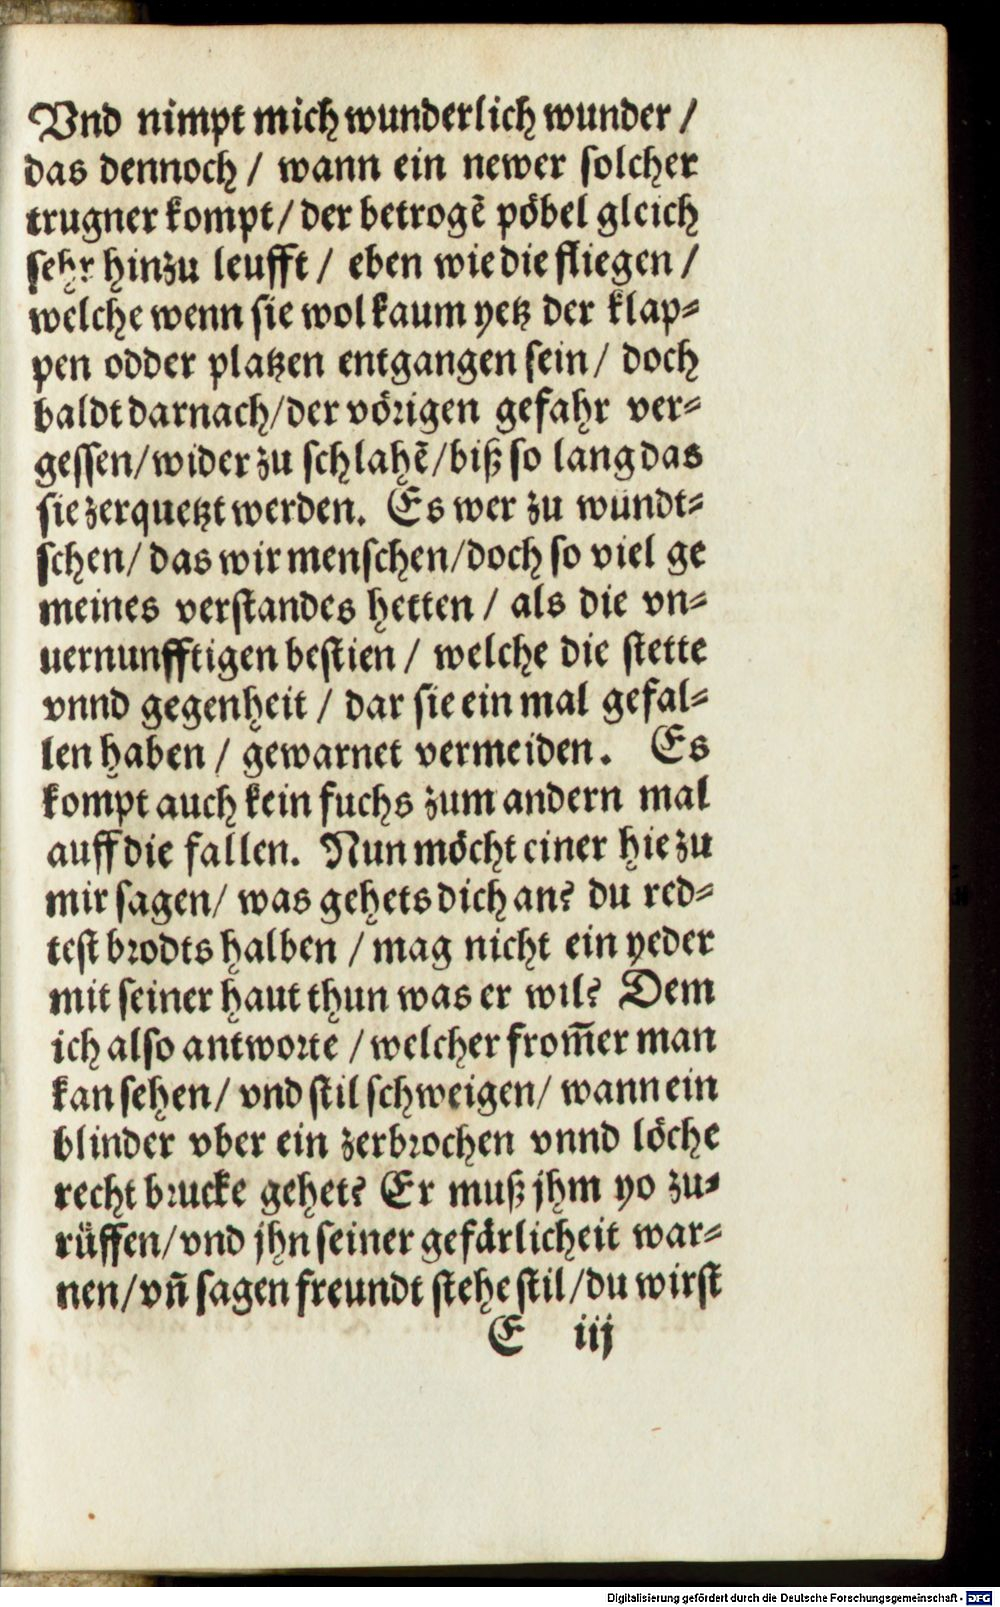 Vnd nimpt mich wunderlich wunder /
das dennoch / wann ein newer solcher
trugner kompt / der betrogē pöbel gleich
sehr hinzu leufft / eben wie die fliegen /
welche wenn sie wol kaum yetz der klap⸗
pen odder platzen entgangen sein / doch
baldt darnach / der vörigen gefahr ver⸗
gessen / wider zu schlahē / biß so lang das
sie zerquetzt werden. Es wer zu wündt⸗
schen / das wir menschen / doch so viel ge
meines verstandes hetten / als die vn⸗
uernunfftigen bestien / welche die stette
vnnd gegenheit / dar sie ein mal gefal⸗
len haben / gewarnet vermeiden. Es
kompt auch kein fuchs zum andern mal
auff die fallen. Nun möcht einer hie zu
mir sagen / was gehets dich an? du red⸗
test brodts halben / mag nicht ein yeder
mit seiner haut thun was er wil? Dem
ich also antworte / welcher from̄er man
kan sehen / vnd stil schweigen / wann ein
blinder vber ein zerbrochen vnnd löche
recht brucke gehet? Er muß jhm yo zu⸗
rüffen / vnd jhn seiner gefärlicheit war⸗
nen / vn̄ sagen freundt stehe stil / du wirst
E iij
Digitalisierung gefördert durch die Deutsche Forschungsgemeinschaft - DFG